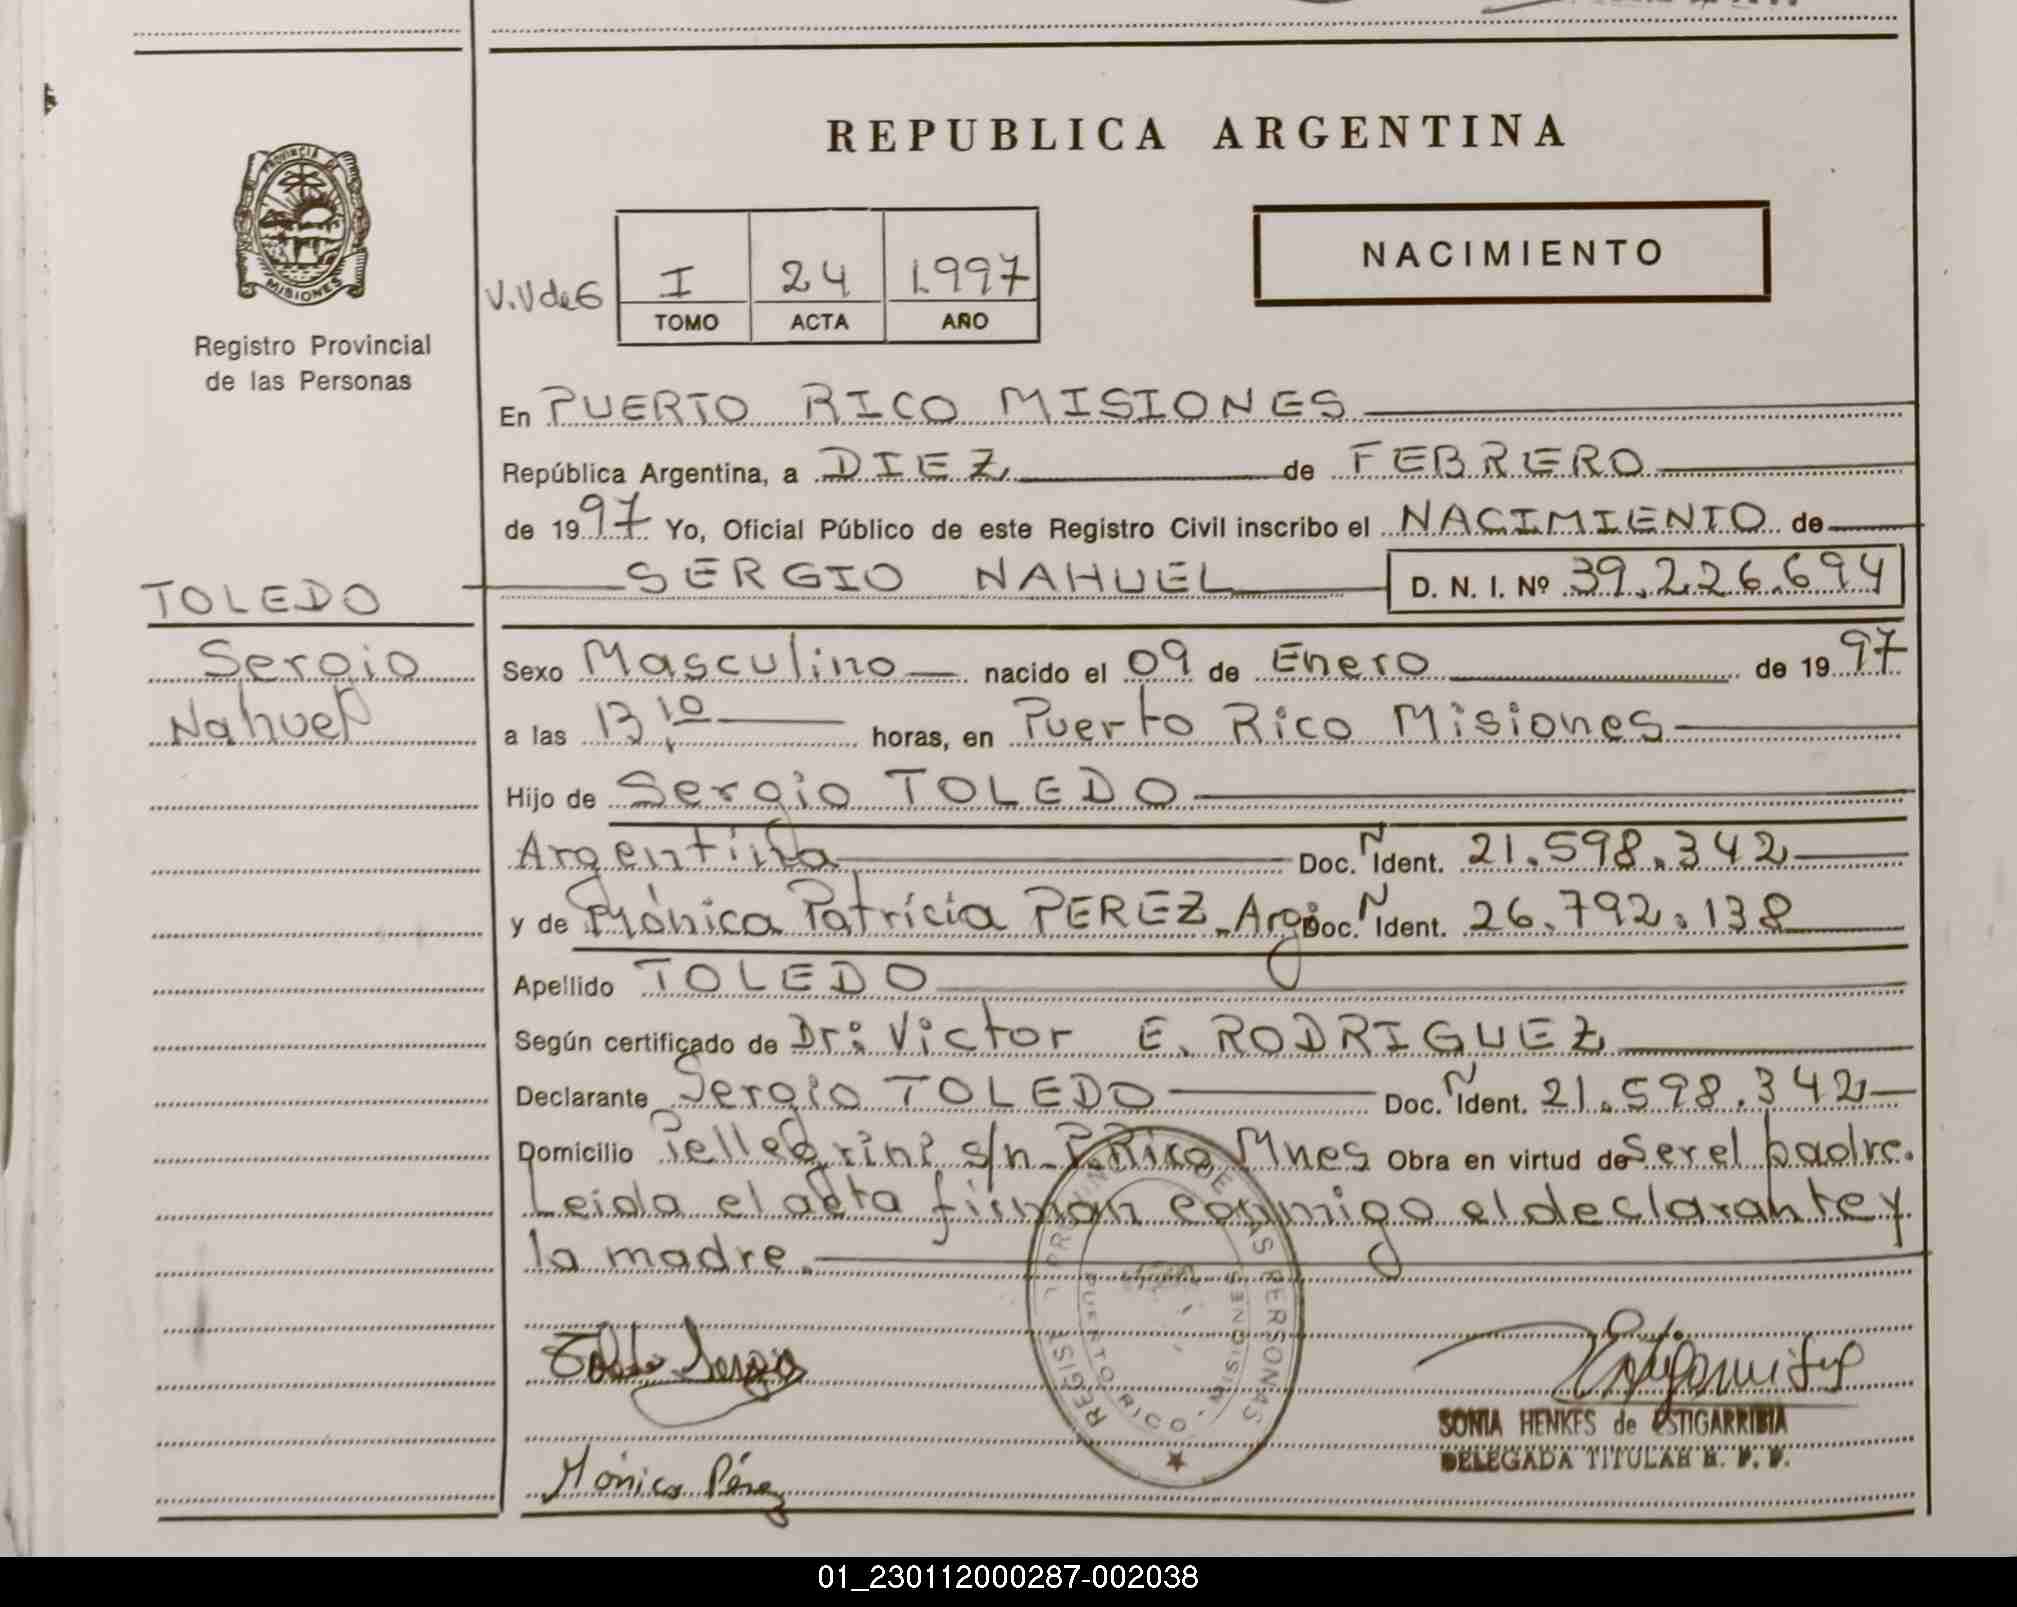 REPUBLICA ARGENTINA
PROVINCIA DE
MISIONES
Registro Provincial
de las Personas
NACIMIENTO
V.V de 6
I 24 1.997
TOMO ACTA AÑO
En PUERTO RICO MISIONES
República Argentina, a DIEZ de FEBRERO
de 1997 Yo, Oficial Público de este Registro Civil inscribo el NACIMIENTO de
SERGIO NAHUEL D. N. I. Nº 39.226.694
TOLEDO
Sergio
Nahuel
Sexo Masculino nacido el 09 de Enero de 1997
a las 13,10 horas, en Puerto Rico Misiones
Hijo de Sergio TOLEDO
Argentina Doc. Ñ Ident. 21.598.342
y de Mónica Patricia PEREZ Arg. Doc. Ñ Ident. 26.792.138
Apellido TOLEDO
Según certificado de Dr: Victor E. RODRIGUEZ
Declarante Sergio TOLEDO Doc. Ñ Ident. 21.598.342
Domicilio Pellegrini s/n P. Rico Mnes Obra en virtud de Ser el padre.
Leida el acta firman conmigo el declarante y
la madre.
Toledo Sergio
DE LAS PERSONAS
PUERTO RICO - MISIONES
SONIA HENKES de ESTIGARRIBIA
DELEGADA TITULAR R. P. P.
Mónica Pérez
01_230112000287-002038